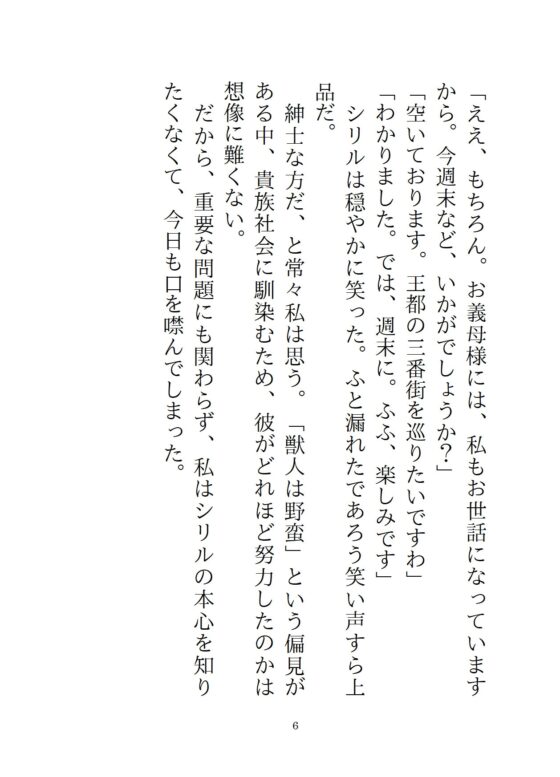 「ええ、もちろん。お義母様には、私もお世話になっています
から。今週末など、いかがでしょうか？」
「空いております。王都の三番街を巡りたいですわ」
「わかりました。では、週末に。ふふ、楽しみです」
　シリルは穏やかに笑った。ふと漏れたであろう笑い声すら上
品だ。
　紳士な方だ、と常々私は思う。「獣人は野蛮」という偏見が
ある中、貴族社会に馴染むため、彼がどれほど努力したのかは
想像に難くない。
　だから、重要な問題にも関わらず、私はシリルの本心を知り
たくなくて、今日も口を噤んでしまった。
6